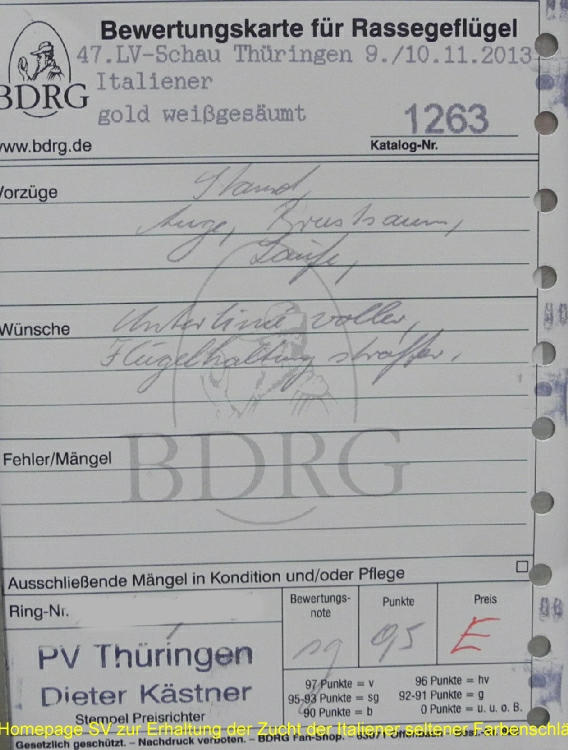 Bewertungskarte für Rassegeflügel
47.LV-Schau Thüringen 9./10.11.2013
BDRG
Italiener
gold weißgesäumt
1263
www.bdrg.de
Katalog-Nr.
Vorzüge
Stand,
Auge, Brustsaum,
Läufe,
Wünsche
Unterlinie voller,
Flügelhaltung straffer.
BDRG
Fehler/Mängel
Ausschließende Mängel in Kondition und/oder Pflege
Ring-Nr.
Bewertungs-
note
Punkte
Preis
sg
95
E
PV Thüringen
Dieter Kästner
Stempel Preisrichter
97 Punkte = v
96 Punkte = hv
95-93 Punkte = sg
92-91 Punkte = g
90 Punkte = b
0 Punkte = u. u. o. B.
Homepage SV zur Erhaltung der Zucht der Italiener seltener Farbenschlä
Gesetzlich geschützt. – Nachdruck verboten. – BDRG Fan-Shop.